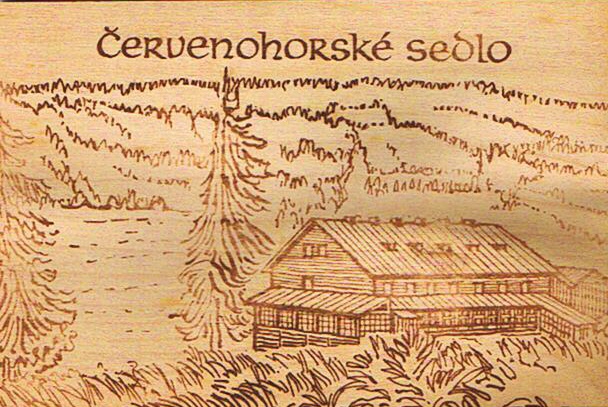 Červenohorské sedlo